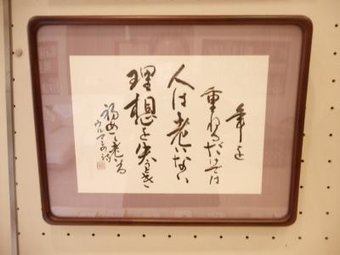 年を
重ねるだけでは
人は老いない
理想を失うとき
初めて老いる
ウルマンの詩